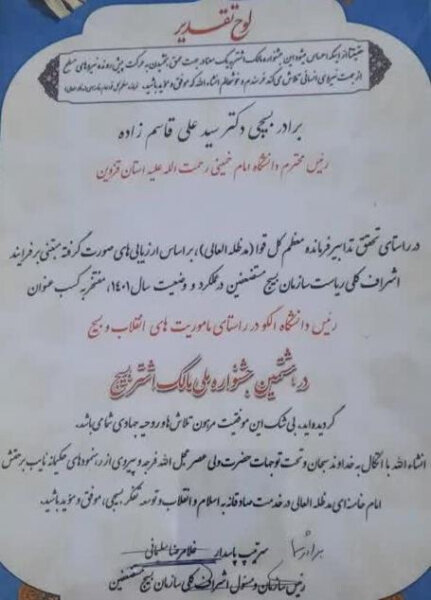 لوح تقدیر
برادر بسیجی دکتر سید علی قاسم زاده
رئیس محترم دانشگاه امام خمینی رحمت الله علیه استان قزوین
در راستای تحقق تدابیر فرمانده معظم کل قوا (مدظله العالی)، بر اساس ارزیابی های صورت گرفته مبتنی بر فرایند
اشراف کلی ریاست سازمان بسیج مستضعفین در عملکرد و وضعیت سال ۱۴۰۱، مفتخر به کسب عنوان
رئیس دانشگاه الگو در راستای ماموریت های انقلاب و بسیج
در هشتمین جشنواره ملی مالک اشتر بسیج
گردیده اید. بی شک این موفقیت مرهون تلاش ها و روحیه جهادی شما می باشد.
انشاء الله با اتکال به خداوند سبحان و تحت توجهات حضرت ولی عصر عجل الله فرجه و پیروی از رهنمودهای حکیمانه نایب بر حقش
امام خامنه ای مدظله العالی در خدمت صادقانه به اسلام و انقلاب و توسعه تفکر بسیجی، موفق و مؤید باشید.
سرتیپ پاسدار غلامرضا سلیمانی
رئیس سازمان و مسئول اشراف کلی سازمان بسیج مستضعفین